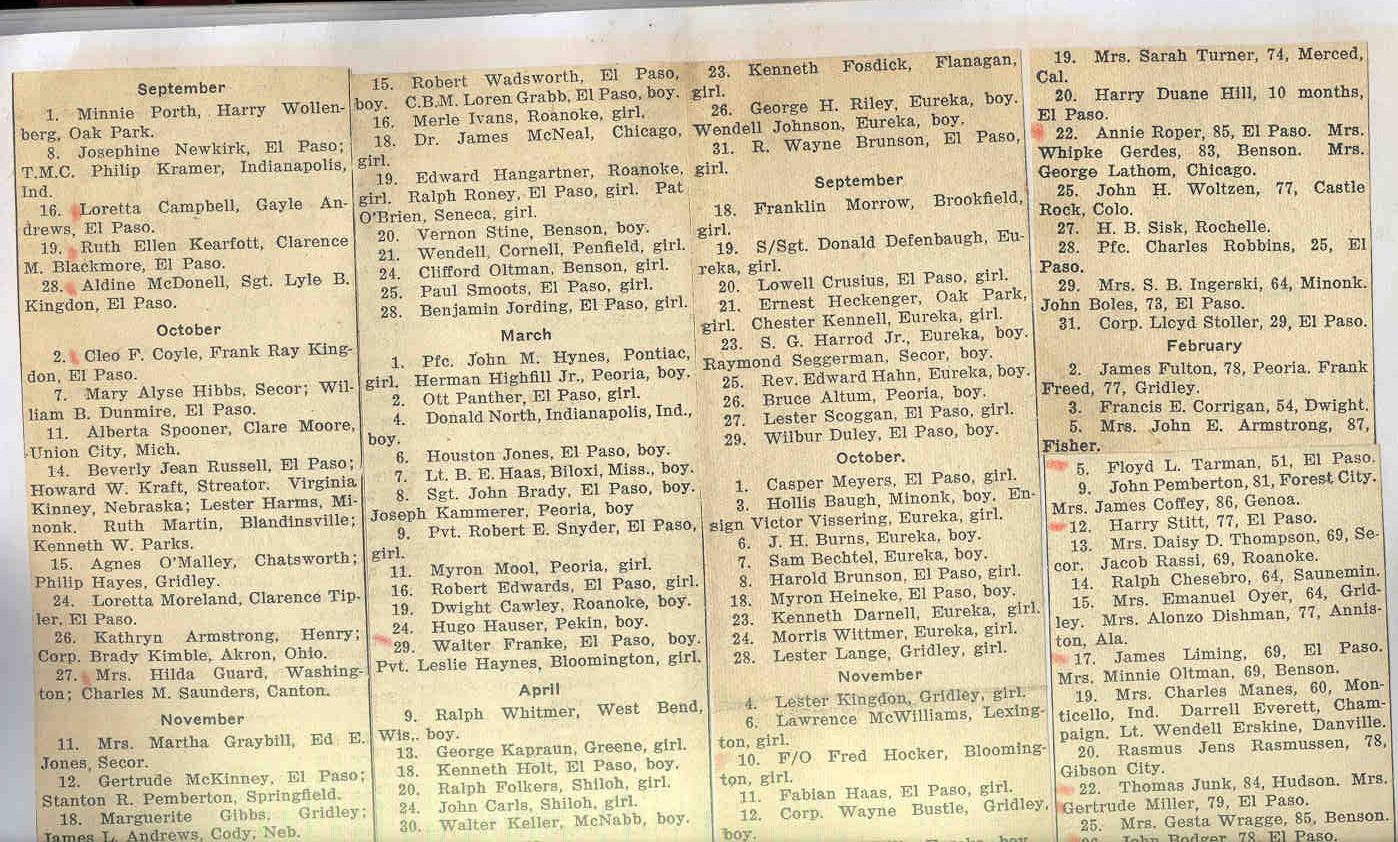 September
1. Minnie Porth, Harry Wollen-
berg, Oak Park.
8. Josephine Newkirk, El Paso;
T.M.C. Philip Kramer, Indianapolis,
Ind.
16. Loretta Campbell, Gayle An-
drews, El Paso.
19. Ruth Ellen Kearfott, Clarence
M. Blackmore, El Paso.
28. Aldine McDonell, Sgt. Lyle B.
Kingdon, El Paso.
October
2. Cleo F. Coyle, Frank Ray King-
don, El Paso.
7. Mary Alyse Hibbs, Secor; Wil-
liam B. Dunmire, El Paso.
11. Alberta Spooner, Clare Moore,
Union City, Mich.
14. Beverly Jean Russell, El Paso;
Howard W. Kraft, Streator. Virginia
Kinney, Nebraska; Lester Harms, Mi-
nonk. Ruth Martin, Blandinsville;
Kenneth W. Parks.
15. Agnes O'Malley, Chatsworth;
Philip Hayes, Gridley.
24. Loretta Moreland, Clarence Tip-
ler, El Paso.
26. Kathryn Armstrong, Henry;
Corp. Brady Kimble, Akron, Ohio.
27. Mrs. Hilda Guard, Washing-
ton; Charles M. Saunders, Canton.
November
11. Mrs. Martha Graybill, Ed E.
Jones, Secor.
12. Gertrude McKinney, El Paso;
Stanton R. Pemberton, Springfield.
18. Marguerite Gibbs, Gridley;
James L. Andrews, Cody, Neb.
15. Robert Wadsworth, El Paso,
boy. C.B.M. Loren Grabb, El Paso, boy.
16. Merle Ivans, Roanoke, girl.
18. Dr. James McNeal, Chicago,
girl.
19. Edward Hangartner, Roanoke,
girl. Ralph Roney, El Paso, girl. Pat
O'Brien, Seneca, girl.
20. Vernon Stine, Benson, boy.
21. Wendell, Cornell, Penfield, girl.
24. Clifford Oltman, Benson, girl.
25. Paul Smoots, El Paso, girl.
28. Benjamin Jording, El Paso, girl.
March
1. Pfc. John M. Hynes, Pontiac,
girl. Herman Highfill Jr., Peoria, boy.
2. Ott Panther, El Paso, girl.
4. Donald North, Indianapolis, Ind.,
boy.
6. Houston Jones, El Paso, boy.
7. Lt. B. E. Haas, Biloxi, Miss., boy.
8. Sgt. John Brady, El Paso, boy.
Joseph Kammerer, Peoria, boy
9. Pvt. Robert E. Snyder, El Paso,
girl.
11. Myron Mool, Peoria, girl.
16. Robert Edwards, El Paso, girl.
19. Dwight Cawley, Roanoke, boy.
24. Hugo Hauser, Pekin, boy.
29. Walter Franke, El Paso, boy.
Pvt. Leslie Haynes, Bloomington, girl.
April
9. Ralph Whitmer, West Bend,
Wis,. boy.
13. George Kapraun, Greene, girl.
18. Kenneth Holt, El Paso, boy.
20. Ralph Folkers, Shiloh, girl.
24. John Carls, Shiloh, girl.
30. Walter Keller, McNabb, boy.
23. Kenneth Fosdick, Flanagan,
girl.
26. George H. Riley, Eureka, boy.
Wendell Johnson, Eureka, boy.
31. R. Wayne Brunson, El Paso,
girl.
September
18. Franklin Morrow, Brookfield,
girl.
19. S/Sgt. Donald Defenbaugh, Eu-
reka, girl.
20. Lowell Crusius, El Paso, girl.
21. Ernest Heckenger, Oak Park,
girl. Chester Kennell, Eureka, girl.
23. S. G. Harrod Jr., Eureka, boy.
Raymond Seggerman, Secor, boy.
25. Rev. Edward Hahn, Eureka, boy.
26. Bruce Altum, Peoria, boy.
27. Lester Scoggan, El Paso, girl.
29. Wilbur Duley, El Paso, boy.
October.
1. Casper Meyers, El Paso, girl.
3. Hollis Baugh, Minonk, boy. En-
sign Victor Vissering, Eureka, girl.
6. J. H. Burns, Eureka, boy.
7. Sam Bechtel, Eureka, boy.
8. Harold Brunson, El Paso, girl.
18. Myron Heineke, El Paso, boy.
23. Kenneth Darnell, Eureka, girl.
24. Morris Wittmer, Eureka, girl.
28. Lester Lange, Gridley, girl.
November
4. Lester Kingdon, Gridley, girl.
6. Lawrence McWilliams, Lexing-
ton, girl.
10. F/O Fred Hocker, Blooming-
ton, girl.
11. Fabian Haas, El Paso, girl.
12. Corp. Wayne Bustle, Gridley,
boy.
19. Mrs. Sarah Turner, 74, Merced,
Cal.
20. Harry Duane Hill, 10 months,
El Paso.
22. Annie Roper, 85, El Paso. Mrs.
Whipke Gerdes, 83, Benson. Mrs.
George Lathom, Chicago.
25. John H. Woltzen, 77, Castle
Rock, Colo.
27. H. B. Sisk, Rochelle.
28. Pfc. Charles Robbins, 25, El
Paso.
29. Mrs. S. B. Ingerski, 64, Minonk.
John Boles, 73, El Paso.
31. Corp. Lloyd Stoller, 29, El Paso.
February
2. James Fulton, 78, Peoria. Frank
Freed, 77, Gridley.
3. Francis E. Corrigan, 54, Dwight.
5. Mrs. John E. Armstrong, 87,
Fisher.
5. Floyd L. Tarman, 51, El Paso.
9. John Pemberton, 81, Forest City.
Mrs. James Coffey, 86, Genoa.
12. Harry Stitt, 77, El Paso.
13. Mrs. Daisy D. Thompson, 69, Se-
cor. Jacob Rassi, 69, Roanoke.
14. Ralph Chesebro, 64, Saunemin.
15. Mrs. Emanuel Oyer, 64, Grid-
ley. Mrs. Alonzo Dishman, 77, Annis-
ton, Ala.
17. James Liming, 69, El Paso.
Mrs. Minnie Oltman, 69, Benson.
19. Mrs. Charles Manes, 60, Mon-
ticello, Ind. Darrell Everett, Cham-
paign. Lt. Wendell Erskine, Danville.
20. Rasmus Jens Rasmussen, 78,
Gibson City.
22. Thomas Junk, 84, Hudson. Mrs.
Gertrude Miller, 79, El Paso.
25. Mrs. Gesta Wragge, 85, Benson.
John Bodger, 78, El Paso.